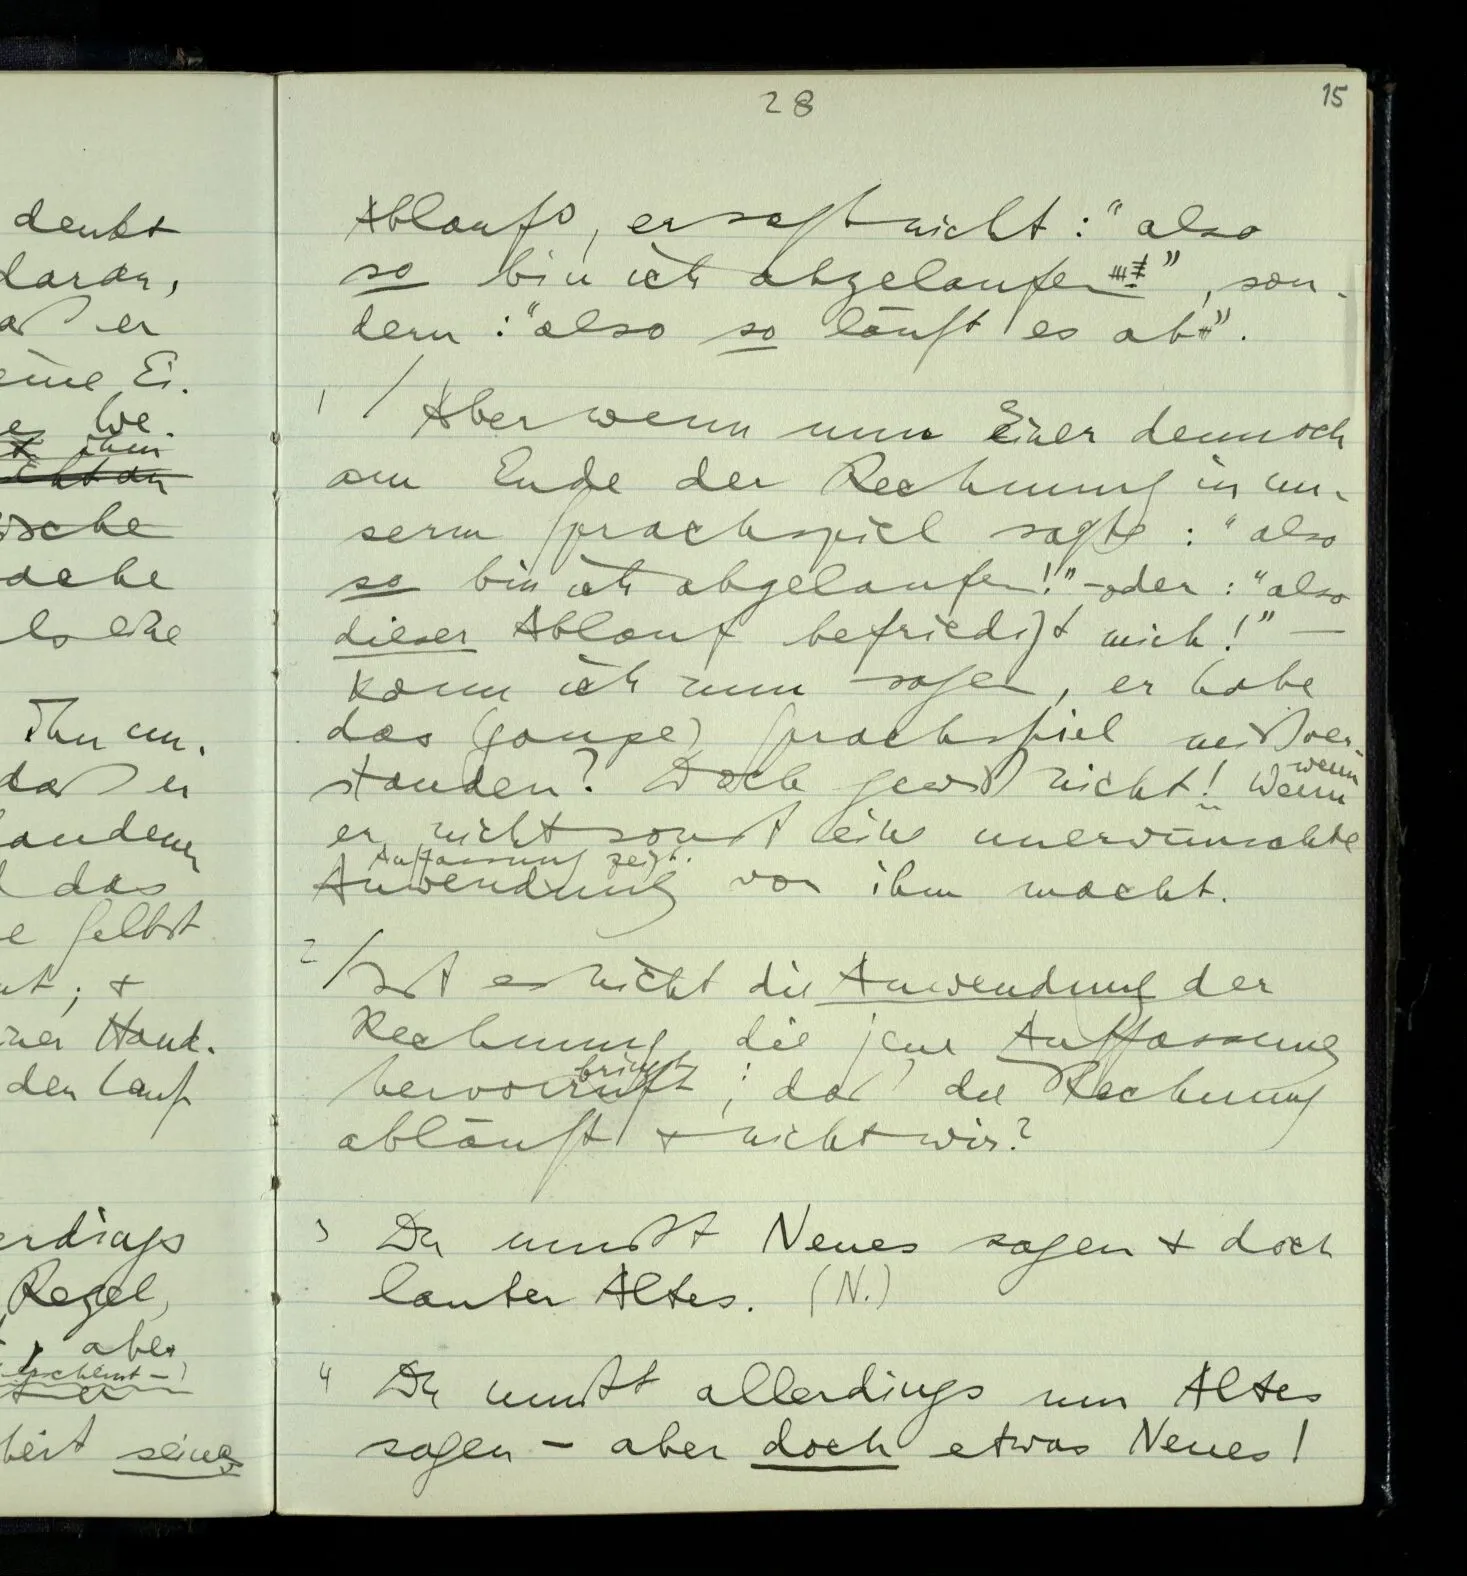 denkt
daran,
er
eine Ei.
We.
ihm
sche
ache
ls eine
Ihn un.
daß er
andenen
das
e selbst
nt; +
iner Hand.
den Lauf
erdings
Regel,
, aber
erscheint – !
heit seines
28
15
Ablaufs, er sagt nicht: "also
so bin ich abgelaufen", son-
dern: "also so läuft es ab".
1 / Aber wenn nun Einer dennoch
am Ende der Rechnung in un-
serm Sprachspiel sagte: "also
so bin ich abgelaufen!" – oder: "also
dieser Ablauf befriedigt mich!" –
kann ich nun sagen, er habe
das (ganze) Sprachspiel mißver-
wenn
standen? Doch gewiß nicht! Wenn
er nicht sonst eine unerwünschte
Auffassung zeigt.
Anwendung von ihm macht.
2 / Ist es nicht die Anwendung der
Rechnung die jene Auffassung
bringt
hervorruft; daß die Rechnung
abläuft + nicht wir?
3 Du mußt Neues sagen + doch
lauter Altes. (N.)
4 Du mußt allerdings nur Altes
sagen – aber doch etwas Neues!